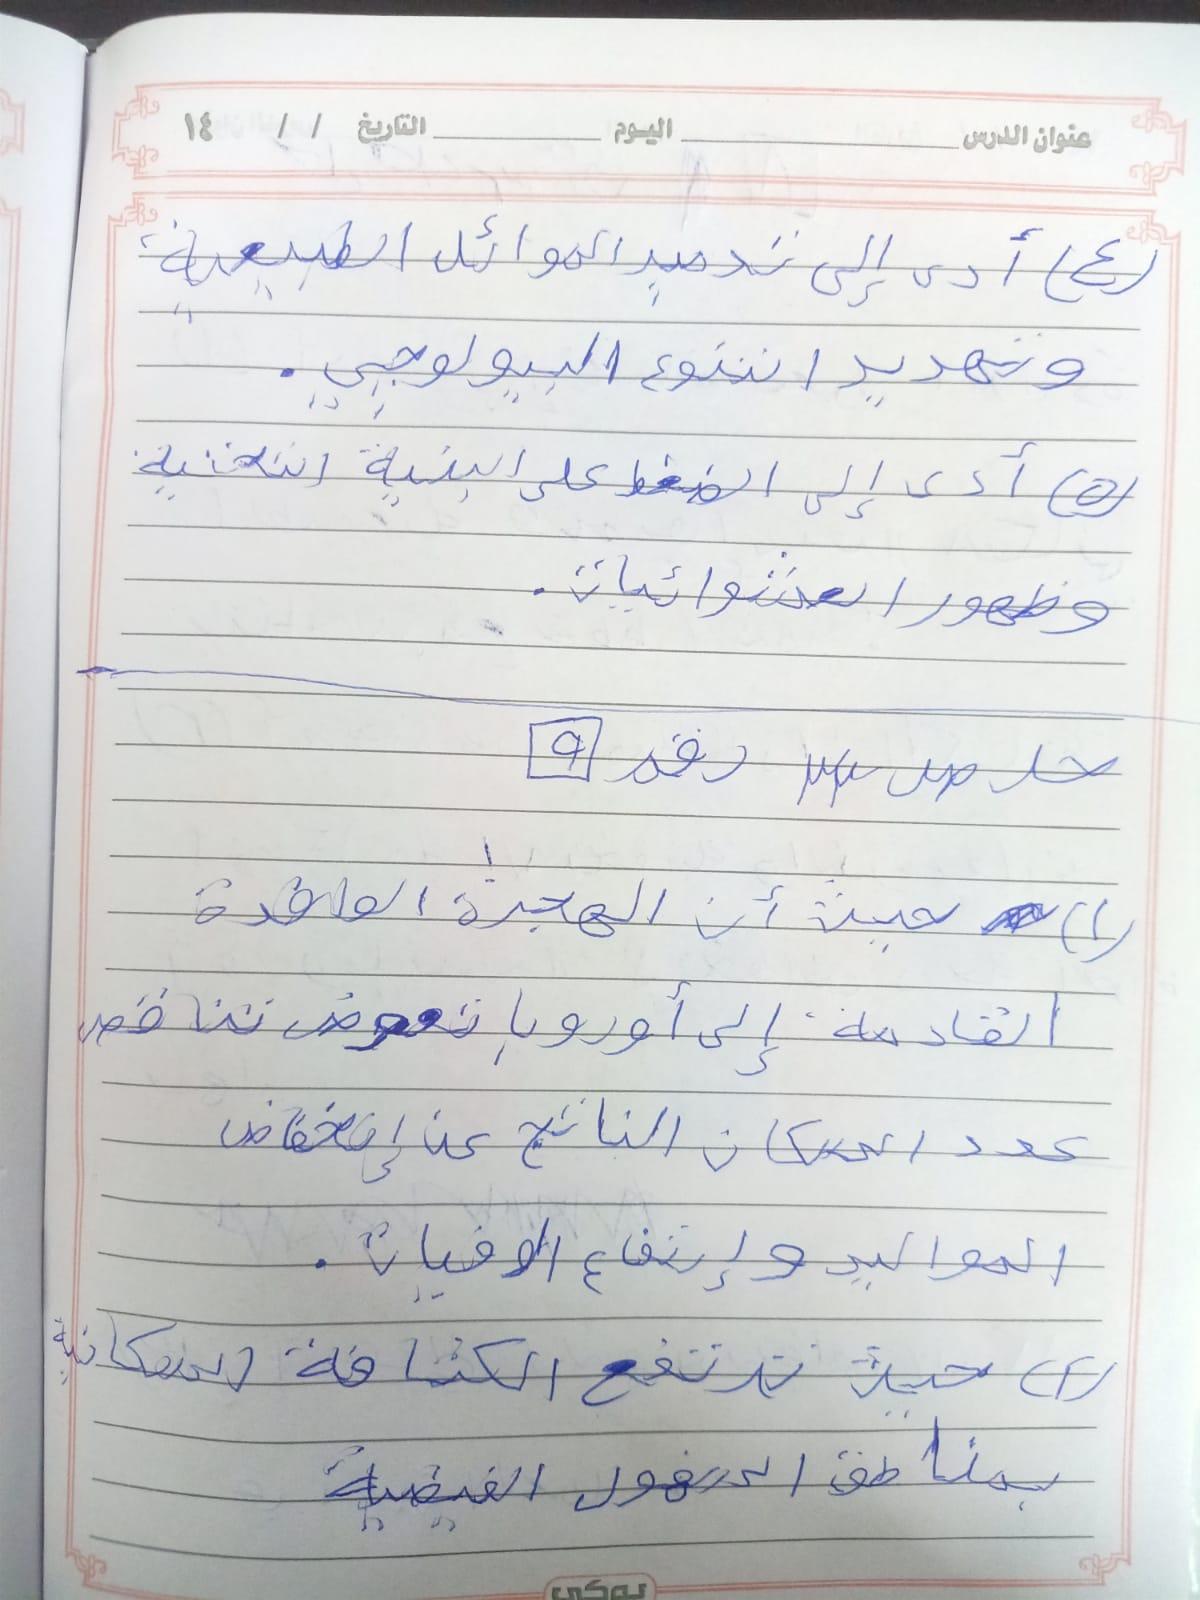 عنوان الدرس اليوم التاريخ / / ١٤
(٤) أدى إلى تدمير الموائل الطبيعية
وتهديد التنوع البيولوجي .
(٥) أدى إلى الضغط على البنية التحتية
وظهور العشوائيات .
حل ص ٣٣ رقم 9
(١) حيث أن الهجرة الوافدة
القادمة إلى أوروبا تعوض تناقص
عدد السكان الناتج عن إنخفاض
المواليد وإرتفاع الوفيات .
(٢) حيث ترتفع الكثافة السكانية
بمناطق السهول الفيضية
يوكي